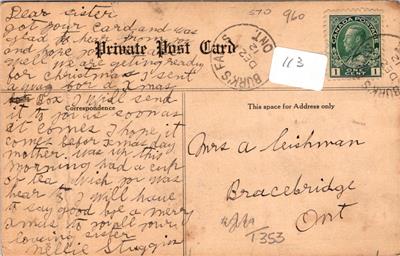 Dear sister
got your card and was
glad to hear from you
and hope you
well we are getting ready
for christmas I sent
a way for a xmas
Box I will send
it to you as soon as
at comes I hope it
comes before xmas day
mother was up this
morning had a cup
of tea wish you was
hear so I will have
to say good bye a merry
xmas to you all your
loveing sister
Nellie
570
960
Private Post Card
BURK'S FALLS
DEC 2
12
ONT
113
CANADA POSTAGE
1 ONE CENT 1
BURK'S
DEC 2
12
ONT
Correspondence
This space for Address only
Mrs A Leishman
Bracebridge
Ont
T353